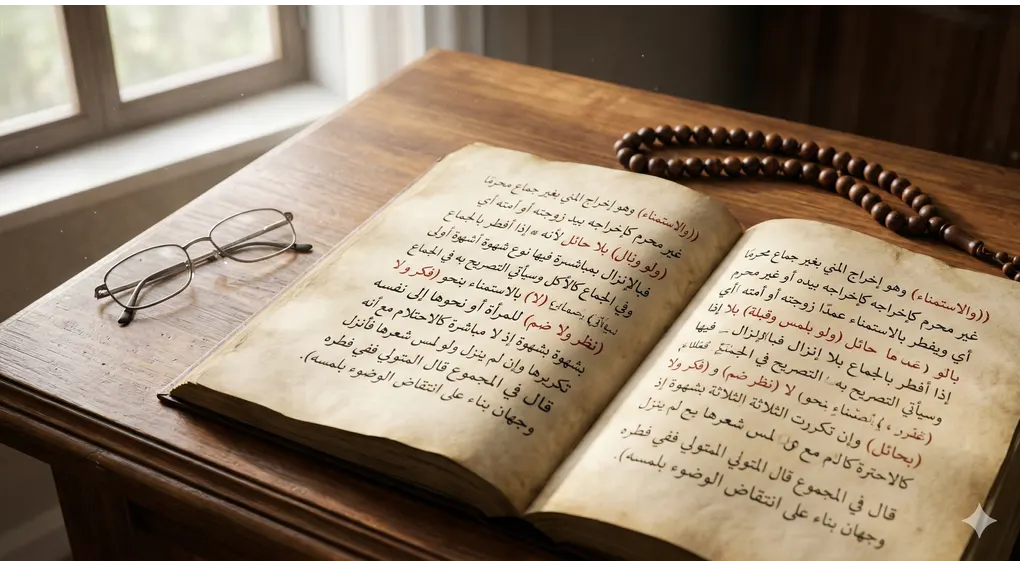 ((والاستمناء) وهو إخراج المني بغير جماع محرمًا
غير محرم كإخراجه كإخراجه بيده أو غير محرم
أي ويفطر بالاستمناء عمدًا زوجته أو أمته أي
حائل (ولو بلمس وقبلة) بلا إذا
إذا أفطر بالجماع بلا إنزال فبالإنزال فيها
وسيأتي التصريح به التصريح في
بنحو) لا (نظر ضم) و (فكر ولا
(بحائل) وإن تكررت الثلاثة الثلاثة بشهوة إذ
مع لمس شعرها لم ينزل
قال في المجموع قال المتولي المتولي ففي فطره
وجهان بناء على انتقاض الوضوء بلمسه).
((والاستمناء) وهو إخراج المني بغير جماع محرمًا
غير محرم كإخراجه بيد زوجته أو أمته أي
بلا حائل لأنه إذا أفطر بالجماع
فبالإنزال بمباشرة فيها نوع شهوة أولى
وفي الجماع كالأكل وسيأتي التصريح به في الجماع
(لا) بالاستمناء بنحو (فكر ولا
(نظر ولا ضم) للمرأة أو نحوها إلى نفسه
بشهوة بشهوة إذ لا مباشرة كالاحتلام مع أنه
تكريرها وإن لم ينزل ولو لمس شعرها فأنزل
قال في المجموع قال المتولي ففي فطره
وجهان بناء على انتقاض الوضوء بلمسه).